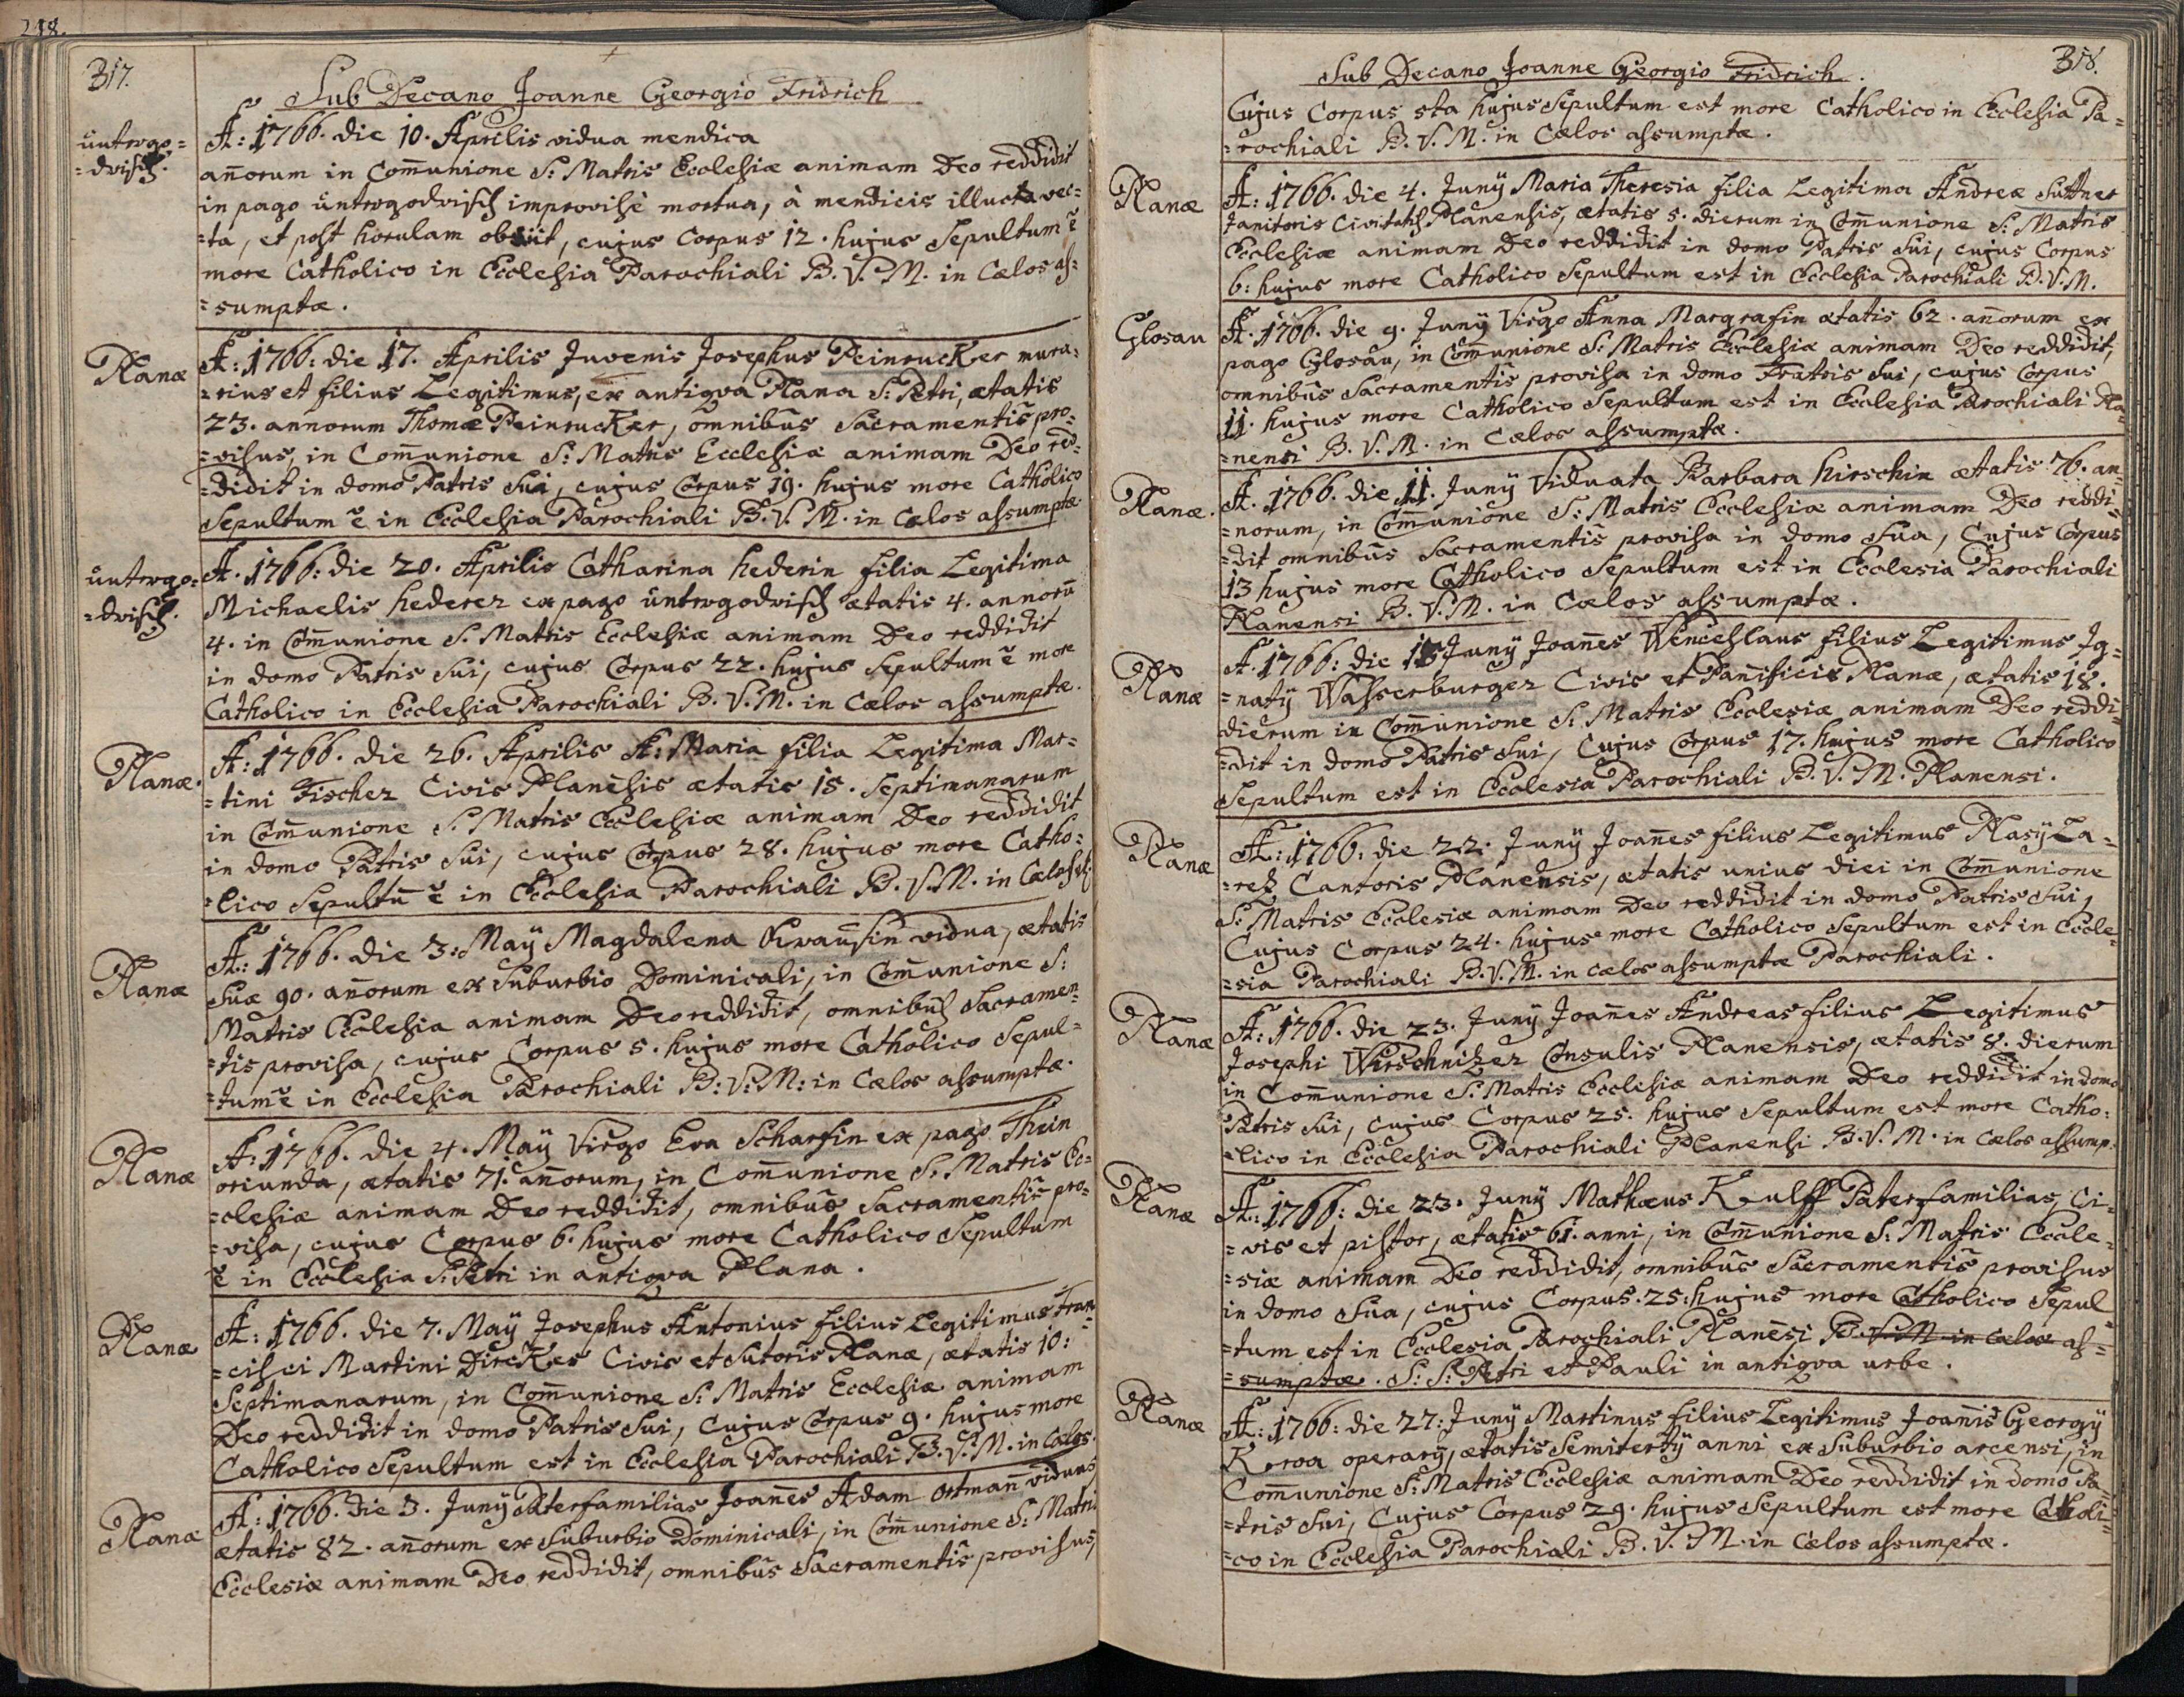 248.
317.
Sub Decano Joanne Georgio Fridrich
untergo=
=drisch.
A: 1766. die 10. Aprilis vidua mendica
añorum in Com̃unione S: Matris Ecclesiæ animam Deo reddidit
in pago untergodrisch improvisè mortua, à mendicis illuc vec=
=ta, et post horulam obiit, cujus Corpus 12. hujus Sepultum ẽ
more Catholico in Ecclesia Parochiali B. V. M. in Cælos as=
=sumptæ.
Planæ
A: 1766: die 17. Aprilis Juvenis Josephus Peinrucker mura=
=rius et filius Legitimus, ex antiqva Plana S: Petri, ætatis
23. annorum Thomæ Peinrucker, omnibus Sacramentis pro=
=visus, in Com̃unione S: Matris Ecclesiæ animam Deo red=
=didit in domo Patris Sui, cujus Corpus 19. hujus more Catholico
Sepultum ẽ in Ecclesia Parochiali B. V. M. in Cælos assumptæ
untergo=
=drisch.
A. 1766: die 20. Aprilis Catharina hederin filia Legitima
Michaelis hederer ex pago untergodrisch ætatis 4. annorũ
4. in Com̃unione S. Matris Ecclesiæ animam Deo reddidit
in domo Patris Sui, cujus Corpus 22. hujus Sepultum ẽ more
Catholico in Ecclesia Parochiali B. V. M. in Cælos assumptæ.
Planæ.
A: 1766. die 26. Aprilis A: Maria filia Legitima Mar=
=tini Fischer Civis Planẽsis ætatis 15. Septimanarum
in Com̃unione S. Matris Ecclesiæ animam Deo reddidit
in domo Patris Sui, cujus Corpus 28. hujus more Catho=
=lico Sepultũ ẽ in Ecclesia Parochiali B. V. M. in Cælos
Planæ
A.: 1766. die 3: Maÿ Magdalena Krausin vidua, ætatis
Suæ 90. añorum ex Suburbio Dominicali, in Com̃unione S:
Matris Ecclesia animam Deo reddidit, omnibus Sacramen=
=tis provisa, cujus Corpus 5. hujus more Catholico Sepul=
=tum ẽ in Ecclesia Parochiali B: V: M: in Cælos assumptæ.
Planæ
A: 1766. die 4. Maÿ Virgo Eva Scharfin ex pago Thein
oriunda, ætatis 71. añorum, in Com̃unione S. Matris Ec=
=clesiæ animam Deo reddidit, omnibus Sacramentis pro=
=visa, cujus Corpus 6. hujus more Catholico Sepultum
ẽ in Ecclesia S: Petri in antiqva Plana.
Planæ
A: 1766. die 7. Maÿ Josephus Antonius filius Legitimus Fran=
=cisci Martini Dircker Civis et Sutoris Planæ, ætatis 10:
Septimanarum, in Com̃unione S: Matris Ecclesiæ animam
Deo reddidit in domo Patris Sui, Cujus Corpus 9. hujus more
Catholico Sepultum est in Ecclesia Parochiali B. V. M. in Cælos.
Planæ
A: 1766. die 3. Junÿ Paterfamilias Joañes Adam Ortmañ viduus
ætatis 82. añorum ex Suburbio Dominicali, in Com̃unione S: Matris
Ecclesiæ animam Deo reddidit, omnibus Sacramentis provisus,
318.
Sub Decano Joanne Georgio Fridrich.
Cujus Corpus 5ta hujus Sepultum est more Catholico in Ecclesia Pa=
=rochiali B. V. M. in Cælos assumptæ.
Planæ
A: 1766. die 4. Junÿ Maria Theresia filia Legitima Andreæ Süttner
Janitoris Civitatis Planensis, ætatis 5. dierum in Com̃unione S: Matris
Ecclesiæ animam Deo reddidit in domo Patris Sui, cujus Corpus
6: hujus more Catholico Sepultum est in Ecclesia Parochiali B. V. M.
Glosau
A. 1766. die 9. Junÿ Virgo Anna Margrafin ætatis 62. añorum ex
pago Glosau, in Com̃unione S: Matris Ecclesiæ animam Deo reddidit,
omnibus Sacramentis provisa in domo Fratris Sui, cujus Corpus
11. hujus more Catholico Sepultum est in Ecclesia Parochiali Pla=
=nensi B. V. M. in Cælos assumptæ.
Planæ.
A. 1766. die 11. Junÿ Viduata Barbara hirschin ætatis 76. an=
=norum, in Com̃unione S: Matris Ecclesiæ animam Deo reddi=
=dit omnibus Sacramentis provisa in domo Sua, Cujus Corpus
13 hujus more Catholico Sepultum est in Ecclesia Parochiali
Planensi B. V. M. in Cælos assumptæ.
Planæ
A. 1766: die 15 Junÿ Joañes Wenceslaus filius Legitimus Ig=
=natÿ Wasserburger Civis et Pañificis Planæ, ætatis 18.
dierum in Com̃unione S. Matris Ecclesiæ animam Deo reddi=
=dit in domo Patris Sui, Cujus Corpus 17. hujus more Catholico
Sepultum est in Ecclesia Parochiali B. V. M. Planensi.
Planæ
A: 1766. die 22. Junÿ Joañes filius Legitimus Blasÿ La=
=retz Cantoris Planensis, ætatis unius diei in Com̃unione
S. Matris Ecclesiæ animam Deo reddidit in domo Patris Sui,
Cujus Corpus 24. hujus more Catholico Sepultum est in Eccle=
=sia Parochiali B. V. M. in cælos assumptæ Parochiali.
Planæ
A: 1766. die 23. Junÿ Joañes Andreas filius Legitimus
Josephi Wirschnitzer Consulis Planensis, ætatis 8. dierum
in Com̃unione S. Matris Ecclesiæ animam Deo reddidit in domo
Patris Sui, cujus Corpus 25. hujus Sepultum est more Catho=
=lico in Ecclesia Parochiali Planensi B. V. M. in cælos assump.
Planæ
A.: 1766: die 23. Junÿ Mathæus Kulff Paterfamilias, Ci=
=vis et pistor, ætatis 61. anni, in Com̃unione S: Matris Eccle=
=siæ animam Deo reddidit, omnibus Sacramentis provisus
in domo Sua, cujus Corpus 25: hujus more Catholico Sepul=
=tum est in Ecclesia Parochiali Planẽsi B. V. M. in cælos as=
=sumptæ. S: S: Petri et Pauli in antiqva urbe.
Planæ
A: 1766: die 27: Junÿ Martinus filius Legitimus Joañis Georgÿ
Kroa operarÿ, ætatis Semitertÿ anni ex Suburbio arcensi, in
Com̃unione S: Matris Ecclesiæ animam Deo reddidit in domo Pa=
=tris Sui, Cujus Corpus 29. hujus Sepultum est more Catholi=
=co in Ecclesia Parochiali B. V. M. in Cælos assumptæ.